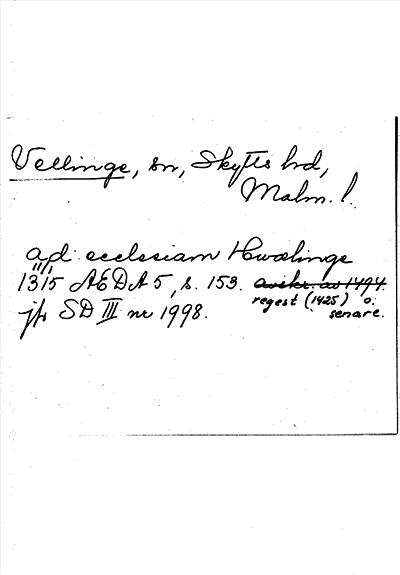 Vellinge, sn, Skytts hrd,
Malm. l.
ad ecclesiam Hwælinge
1315 AEDA 5, s. 153. avskr. av 1494.
regest (1425) o.
jfr SD III nr 1998.
senare.